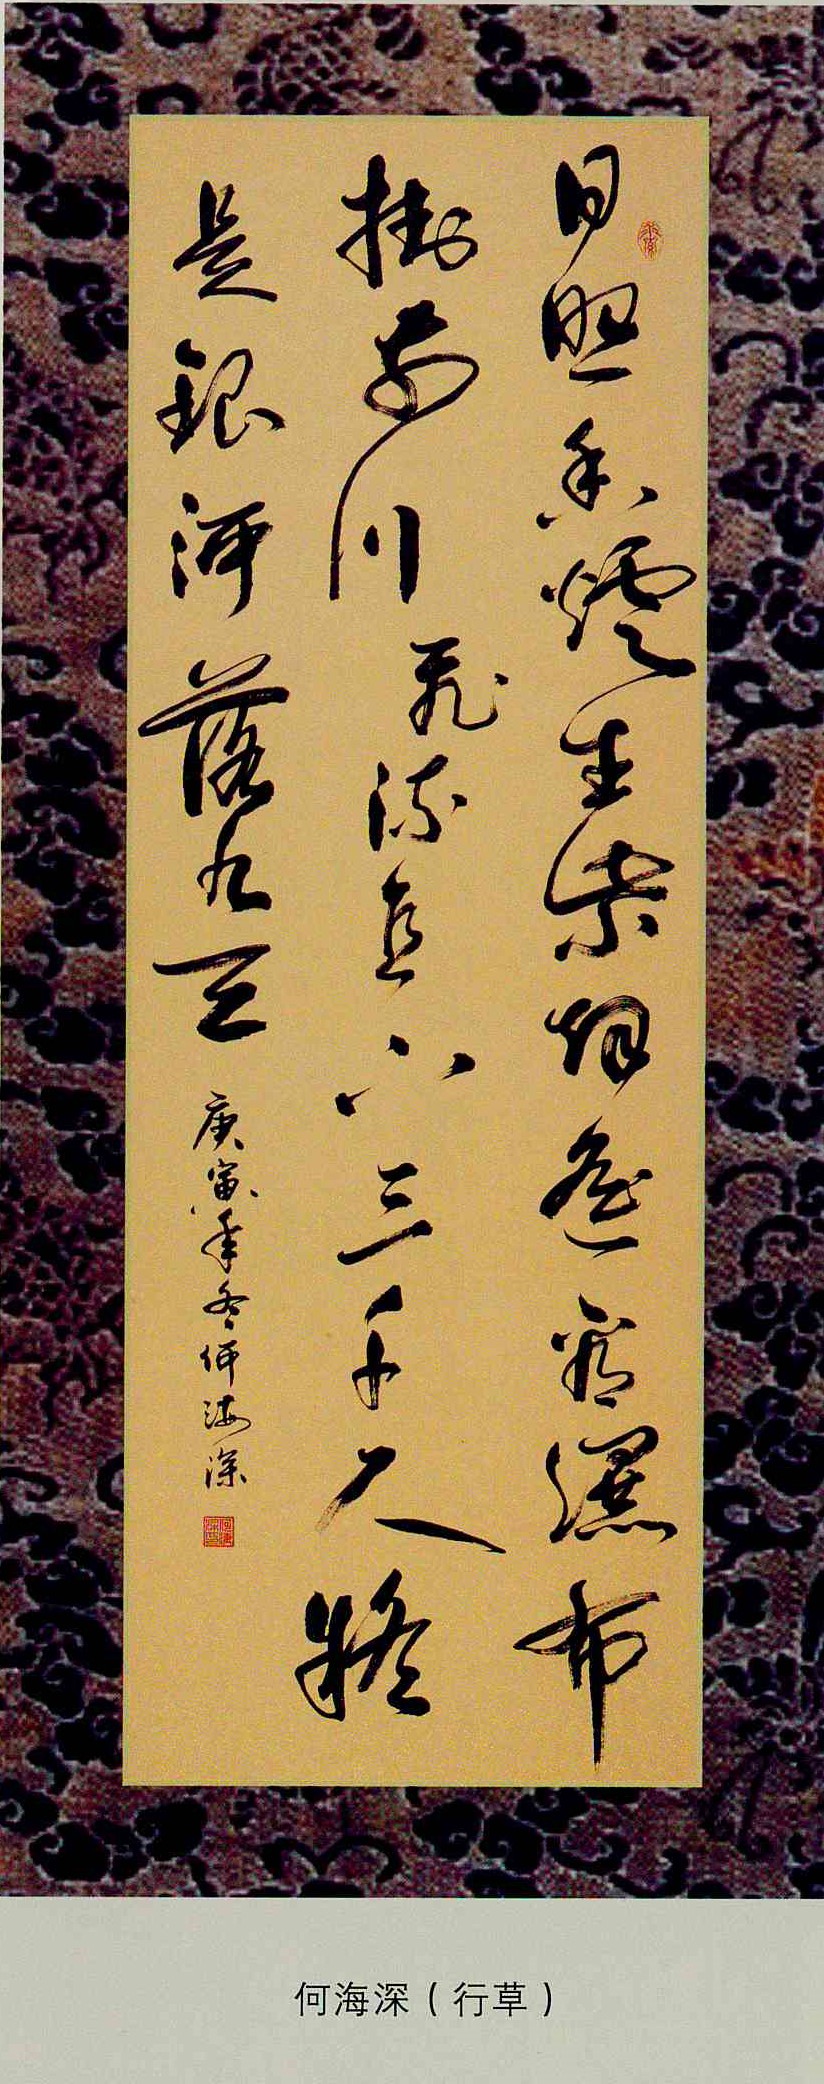 日照香爐生紫烟遙看瀑布
掛前川飛流直下三千尺疑
是銀河落九天
庚寅年冬何海深
何海深（行草）